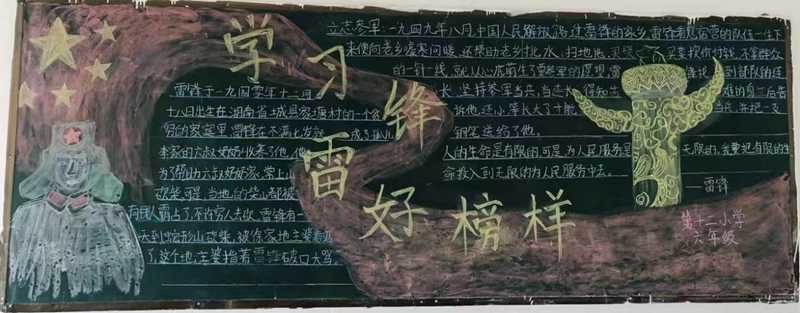 学习雷锋好榜样
雷锋于一九四零年十二月
十八日出生在湖南省望城县家塘村的一个贫
穷的家庭里,雷锋在不满七岁就成了孤儿
李家的六叔奶奶收养了他,他
为了帮助六叔奶奶家,常上山
砍柴,可是,当地的柴山都被
有钱人霸占了,不许穷人去砍,雷锋有一
天到蛇形山砍柴,被徐家地主婆看见
了,这个地主婆指着雷锋破口大骂,
立志参军:一九四九年八月,中国人民解放路过雷锋的家乡,雷锋看见宿营的队伍一住下
来便向老乡嘘寒问暖,还帮助老乡挑水、扫地
的一针一线,就从心底萌生了要参军的愿望
长 坚持参军当兵,当连长得知
诉他,还小,等长大了才能
当兵,并把一支
钢笔送给了他。
人的生命是有限的,可是为人民服务是
无限的,我要把有限的生
命投入到无限的为人民服务中去。
——雷锋
第十二小学
六年级